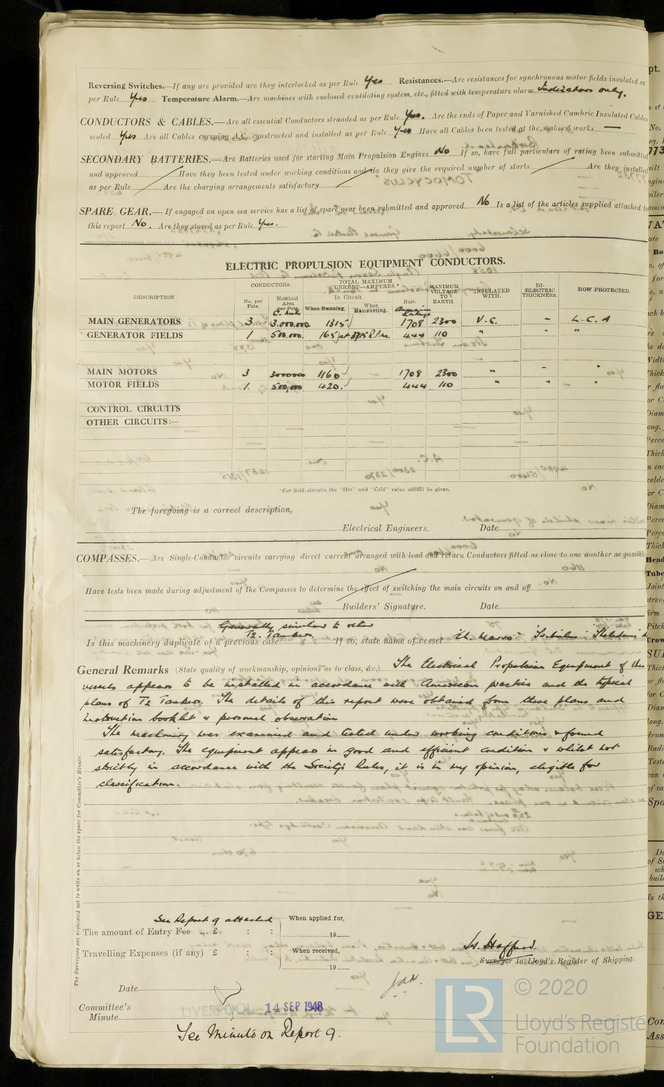 Reversing Switches.—If any are provided are they interlocked as per Rule Yes Resistances.—Are resistances for synchronous motor fields insulated as
per Rule Yes Temperature Alarm.—Are machines with enclosed ventilating system, etc., fitted with temperature alarm Indicators only.
CONDUCTORS & CABLES.—Are all essential Conductors stranded as per Rule Yes. Are the ends of Paper and Varnished Cambric Insulated Cables
sealed Yes Are all Cables carrying A.C. constructed and installed as per Rule Yes Have all Cables been tested at the makers works —
SECONDARY BATTERIES.—Are Batteries used for starting Main Propulsion Engines No If so, have full particulars of rating been submitted
and approved Have they been tested under working conditions and do they give the required number of starts Are they installed
as per Rule Are the charging arrangements satisfactory
SPARE GEAR.—If engaged on open sea service has a list of spare gear been submitted and approved No Is a list of the articles supplied attached to
this report No. Are they stowed as per Rule Yes.
ELECTRIC PROPULSION EQUIPMENT CONDUCTORS.
DESCRIPTION CONDUCTORS. TOTAL MAXIMUM CURRENT—AMPERES.* MAXIMUM VOLTAGE TO EARTH. INSULATED WITH. DI-ELECTRIC THICKNESS. HOW PROTECTED
No. per Pole. Nominal Area per Pole In Circuit. When Running. When Manœuvring. Rule.
MAIN GENERATORS 3 3,000,000 1315 1708 2300 V.C. – L.C.A
GENERATOR FIELDS 1 500,000 444 110 " – "
MAIN MOTORS 3 3000000 1160 1708 2300 " – "
MOTOR FIELDS 1 500,000 420 444 110 " – "
CONTROL CIRCUITS
OTHER CIRCUITS:—
*For field circuits the "Hot" and "Cold" value should be given.
The foregoing is a correct description,
Electrical Engineers. Date
COMPASSES.—Are Single-Conductor circuits carrying direct current arranged with lead and return Conductors fitted as close to one another as possible
Have tests been made during adjustment of the Compasses to determine the effect of switching the main circuits on and off
Builders' Signature. Date
Generally similar to other
Is this machinery duplicate of a previous case T2 Tankers If so, state name of vessel
General Remarks (State quality of workmanship, opinions as to class, &c.) The Electrical Propulsion Equipment of this
vessels appears to be installed in accordance with American practice and the typical
plans of T2 Tankers. The details of this report were obtained from these plans and
instruction booklet & personal observation
The machinery was examined and tested under working conditions & found
satisfactory. The equipment appears in good and efficient condition & whilst not
strictly in accordance with the Society's Rules, it is in my opinion, eligible for
classification.
The Surveyors are requested not to write on or below the space for Committee's Minute.
See Report 9 attached
The amount of Entry Fee £ : : When applied for, 19
Travelling Expenses (if any) £ : : When received, 19
Surveyor to Lloyd's Register of Shipping.
Date
Committee's Minute LIVERPOOL 14 SEP 1948
See Minute on Report 9.
LR
© 2020
Lloyd's Register
Foundation